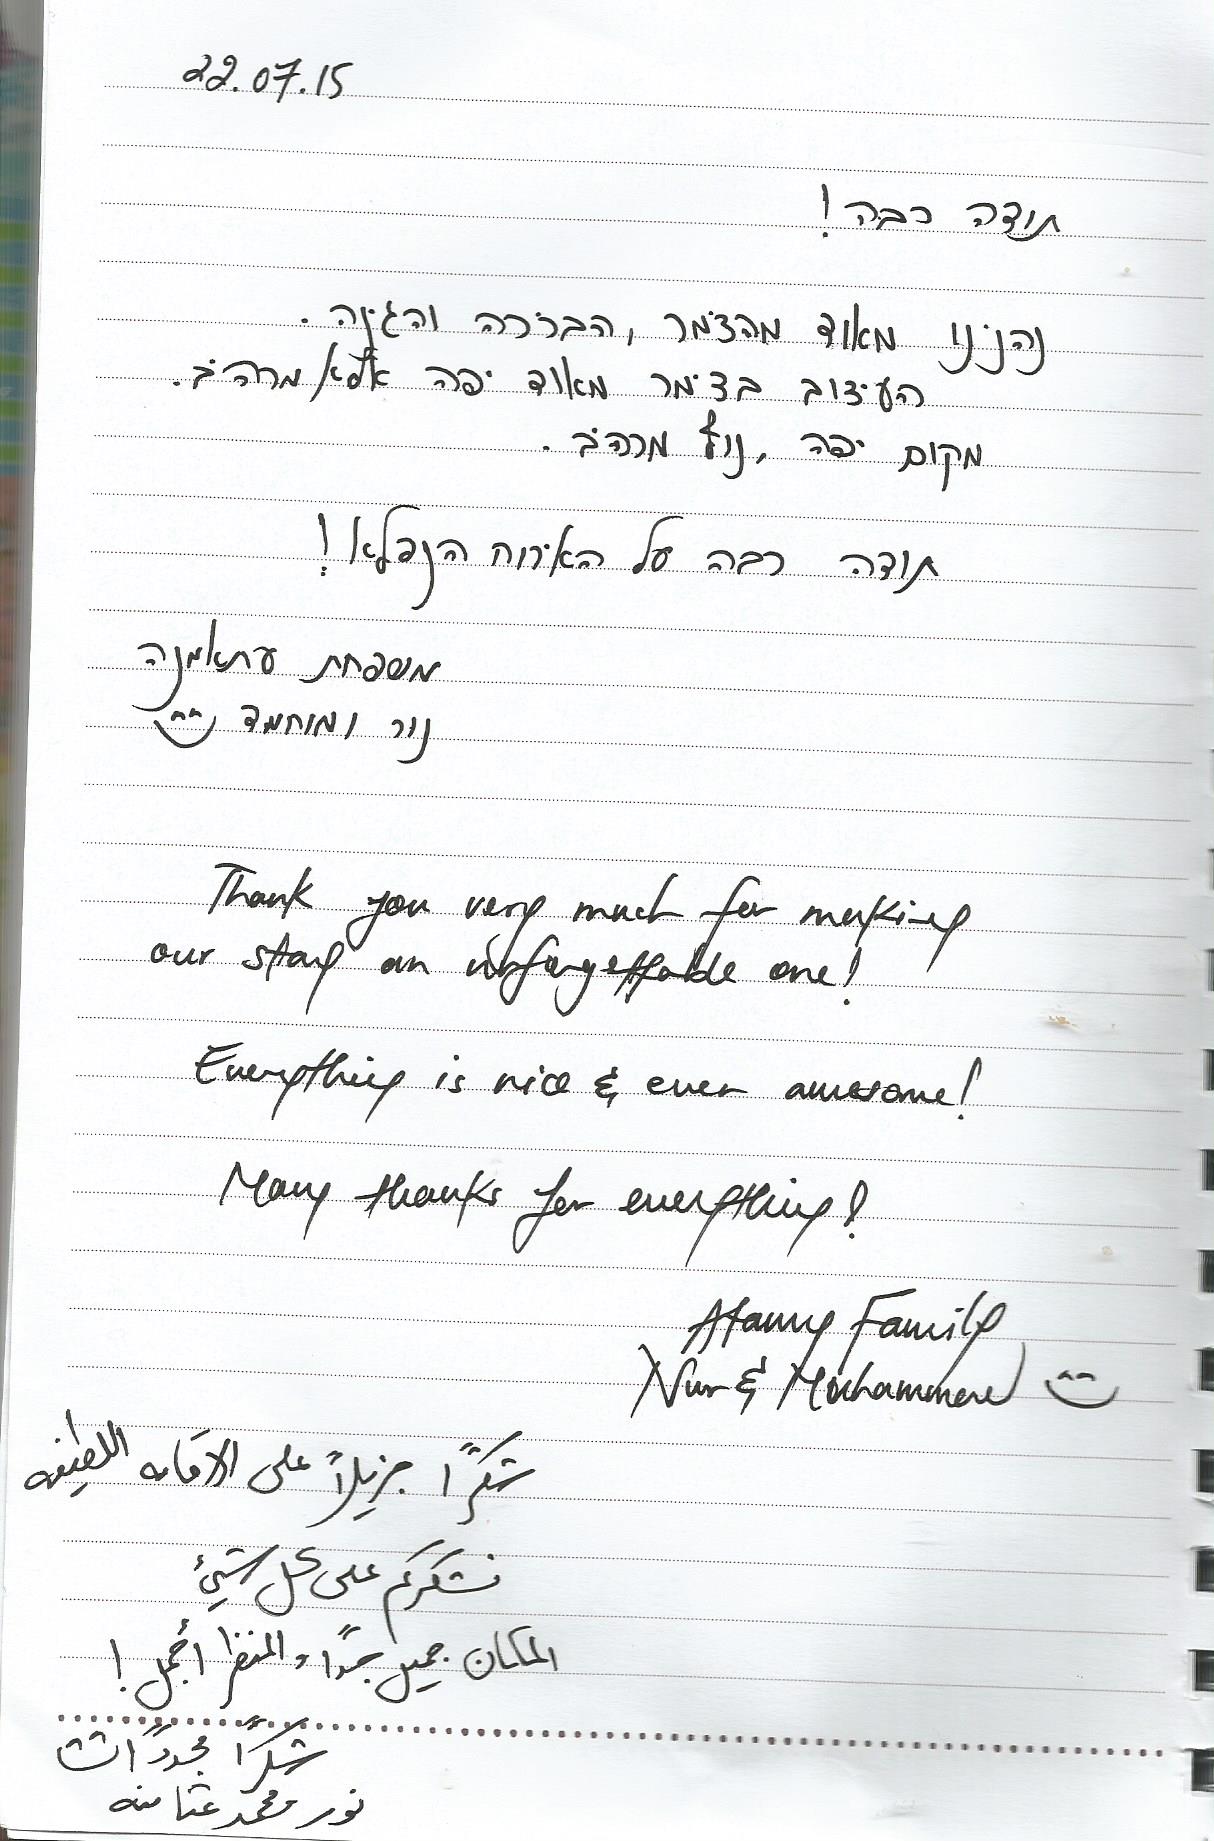 22.07.15
תודה רבה!
נהנינו מאוד מהצימר, הבריכה והגינה.
העיצוב בצימר מאוד יפה אלא מרהיב.
מקום יפה, נוף מרהיב.
תודה רבה על האירוח הנפלא!
משפחת עתאמנה
נור ומוחמד
Thank you very much for making
our stay an unforgettable one!
Everything is nice & even awesome!
Many thanks for everything!
Family
Nur & Mohammed
شكرًا جزيلاً على الاقامه اللطيفه
نشكركم على كل شيئ
المكان جميل جدًا والمنظر أجمل!
شكرًا مجددًا
نور ومحمد عثامنه